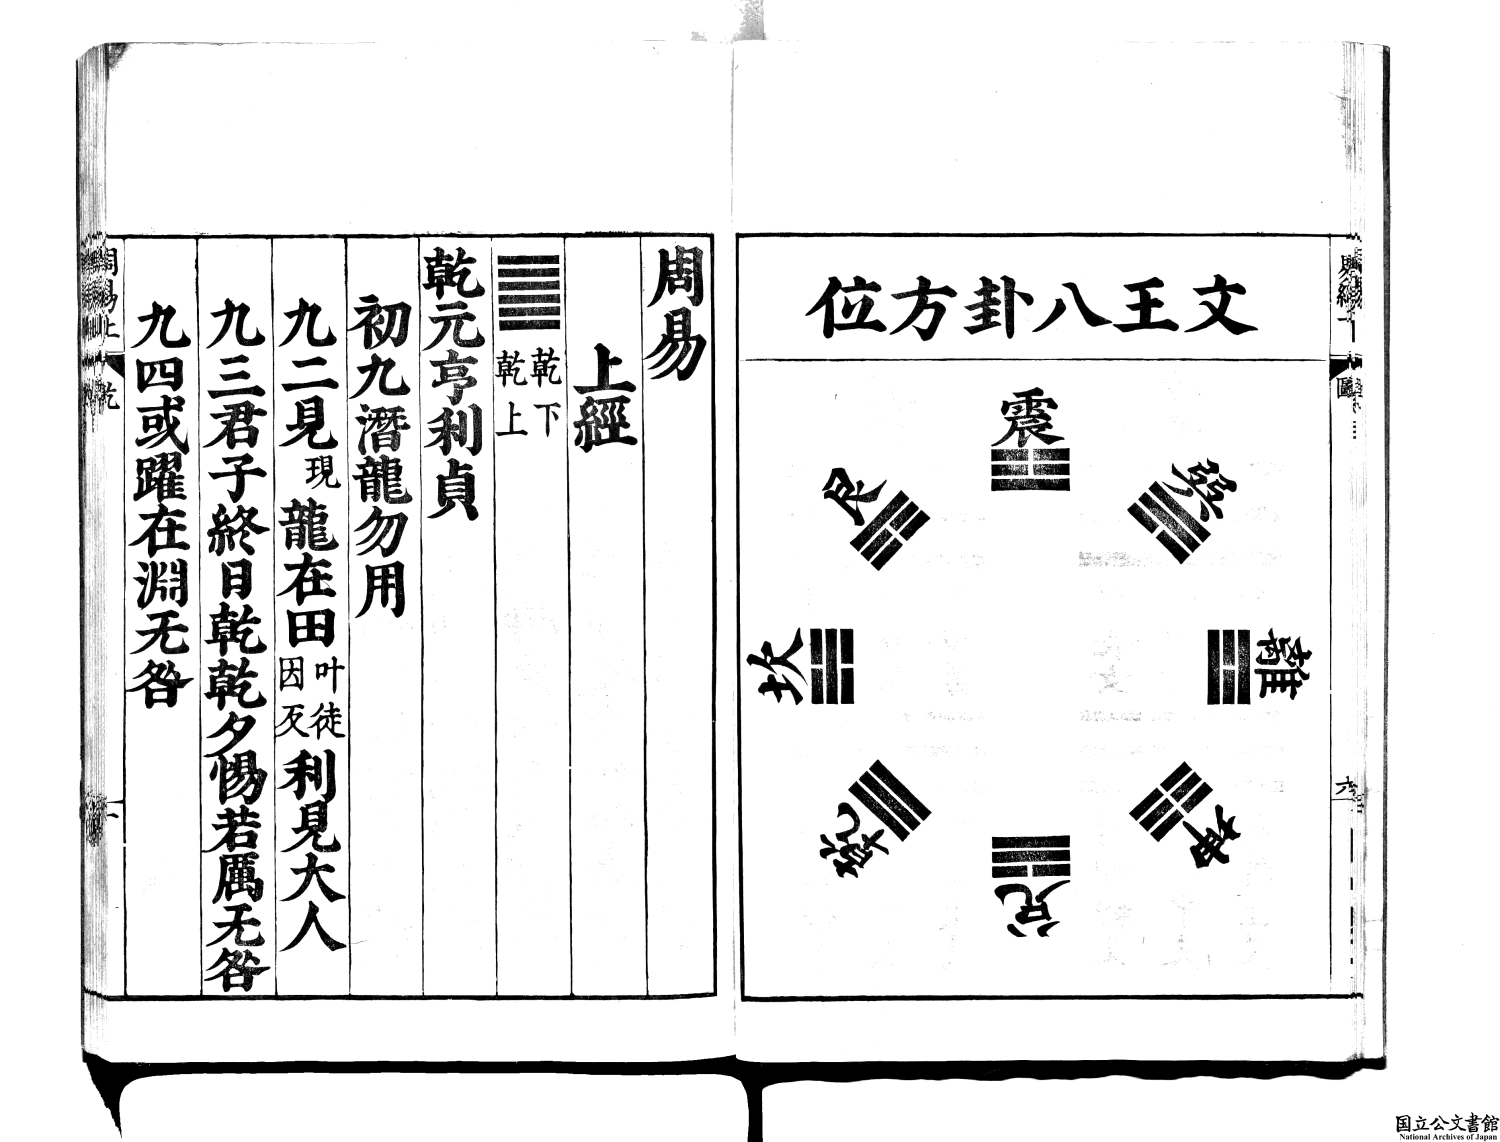 文王八卦方位
震
巽
離
坤
兌
乾
坎
艮
圖
六
周易
上經
䷀乾下乾上
乾元亨利貞
初九潛龍勿用
九二見現龍在田叶徒因反利見大人
九三君子終日乾乾夕惕若厲无咎
九四或躍在淵无咎
周易上
乾
一
国立公文書館
National Archives of Japan